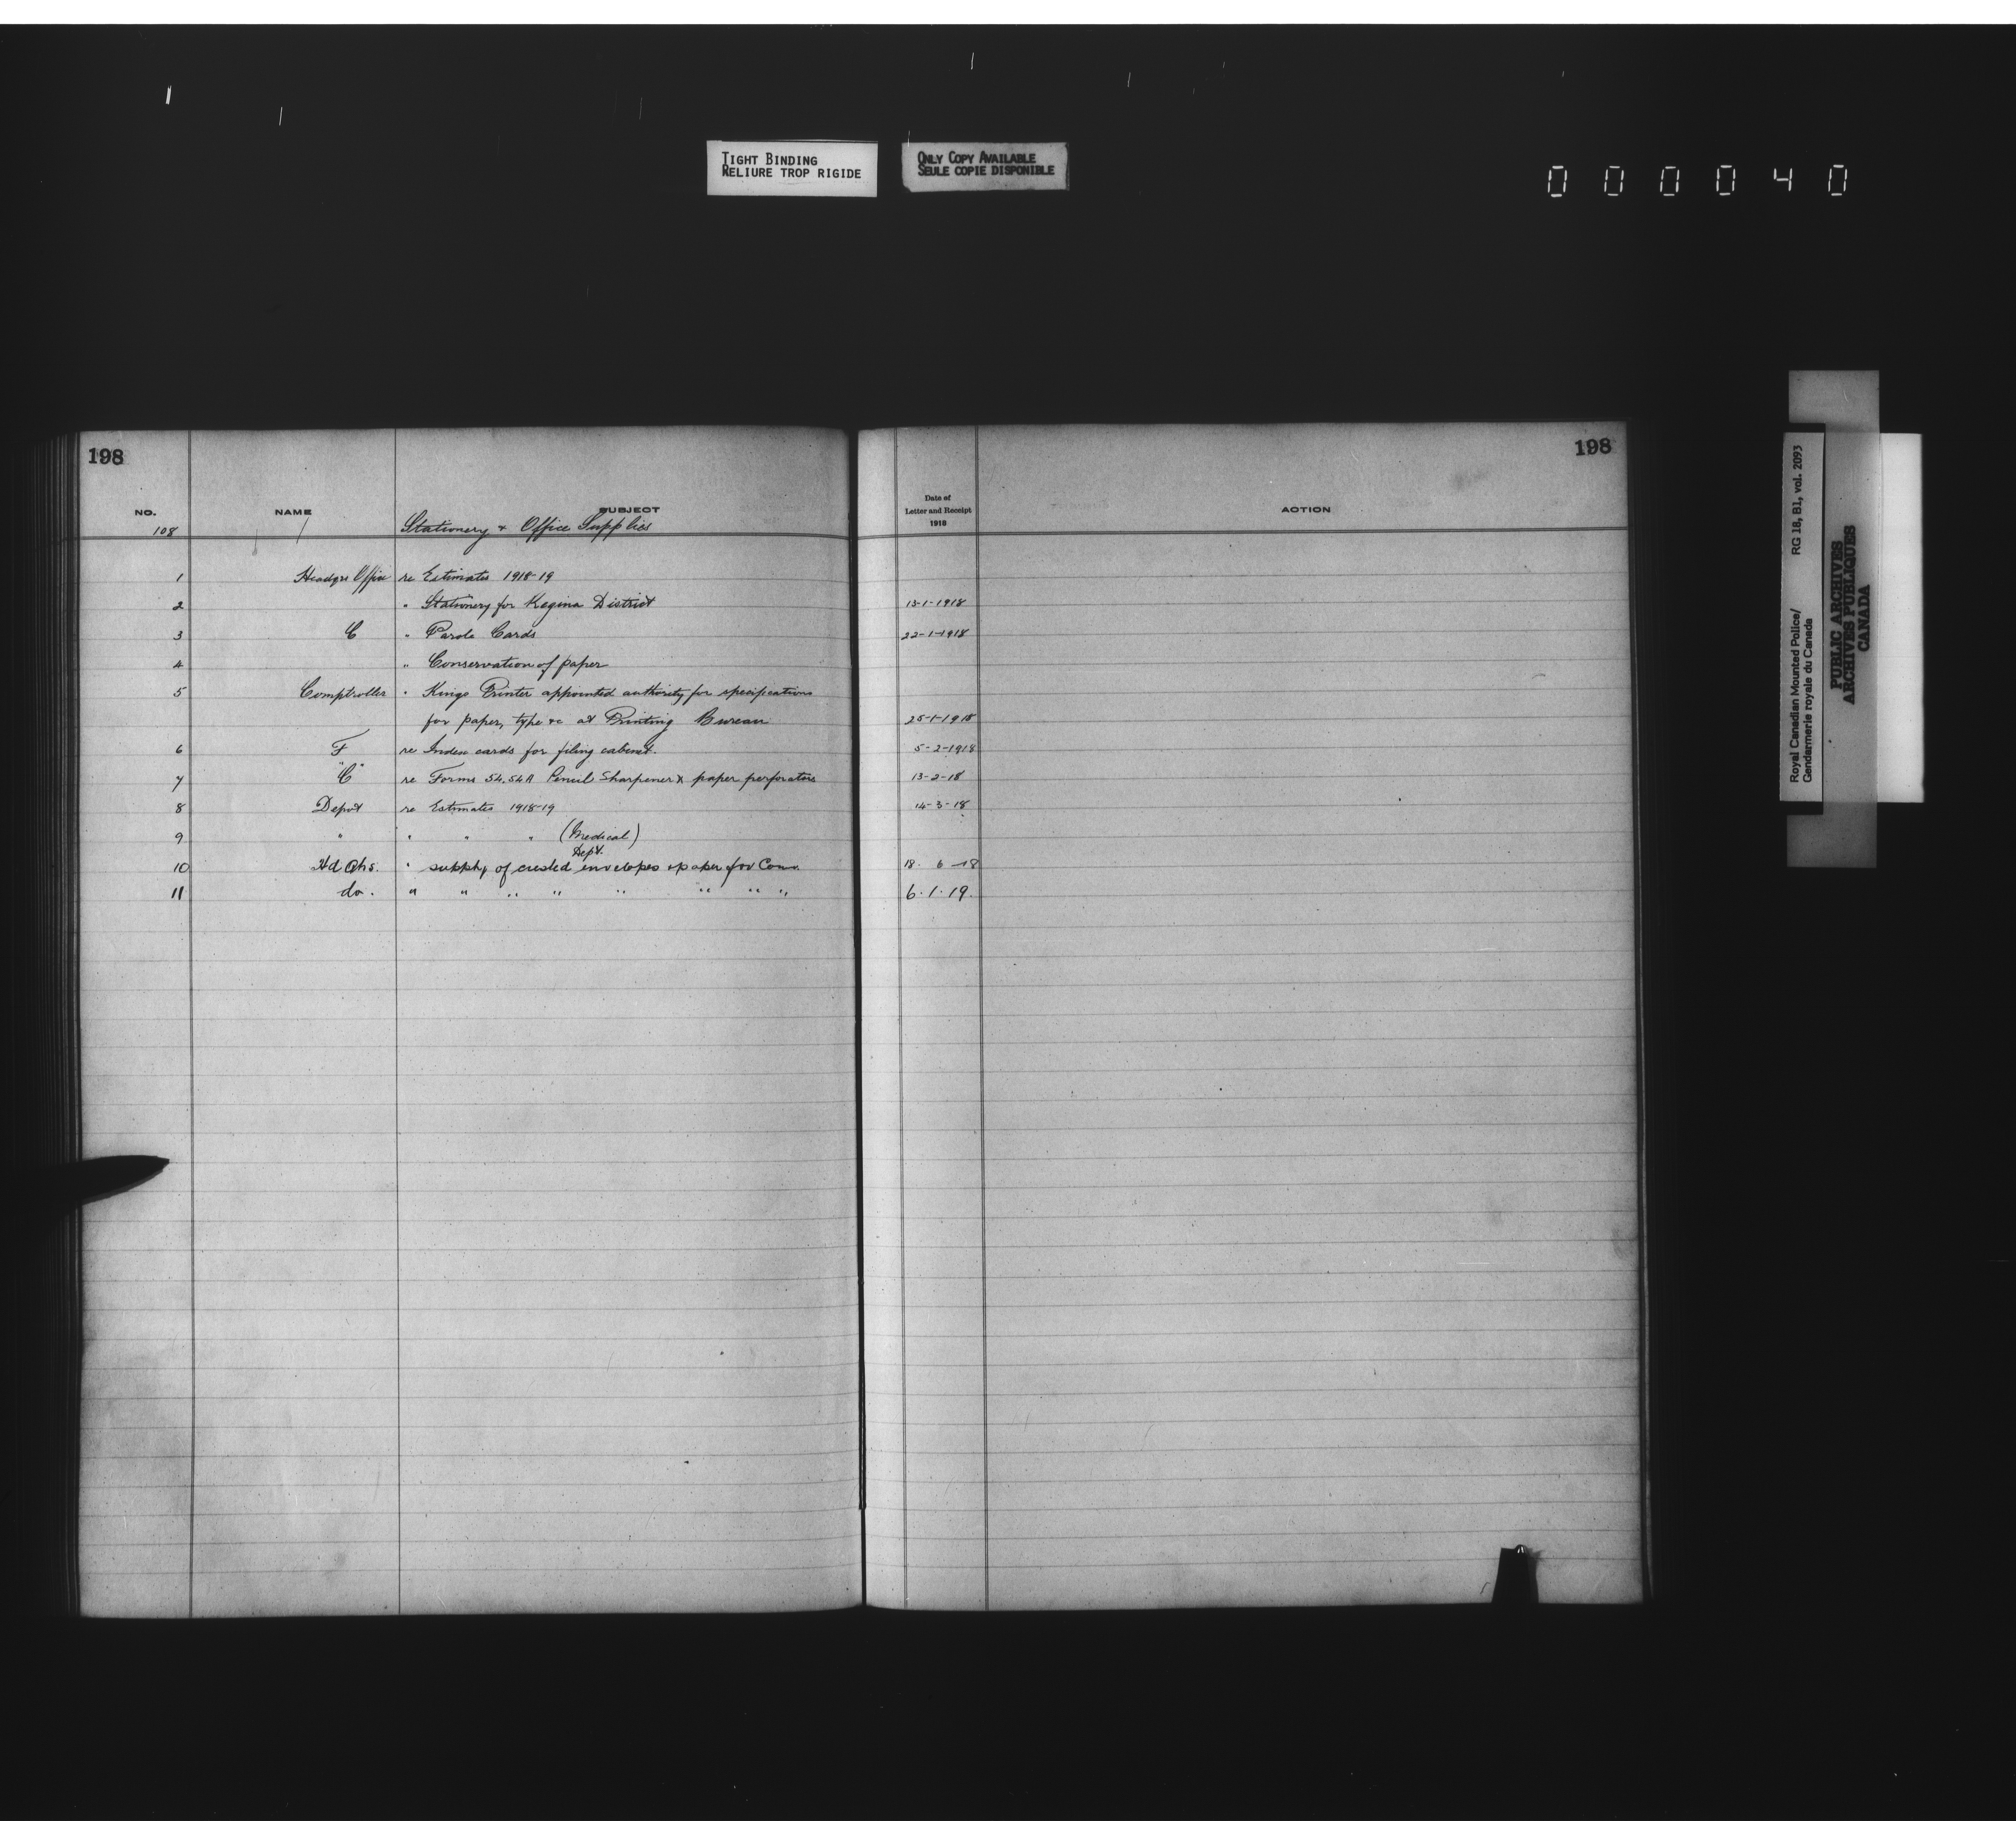 TIGHT BINDING
RELIURE TROP RIGIDE
ONLY COPY AVAILABLE
SEULE COPIE DISPONIBLE
000040
198
198
NO. NAME SUBJECT Date of Letter and Receipt 1918 ACTION
108 Stationery & Office Supplies
1 Headqrs Office re Estimates 1918-19
2 " Stationery for Regina District 13-1-1918
3 C " Parole Cards 22-1-1918
4 " Conservation of paper
5 Comptroller " Kings Printer appointed authority for specifications
for paper, type &c at Printing Bureau 25-1-1918
6 F re Index cards for filing cabinet. 5-2-1918
7 "C" re Forms 54. 54A Pencil Sharpener & paper perforators 13-2-18
8 Depot re Estimates 1918-19 14-3-18
9 " " " " (Medical)
Dept.
10 Hd Qrs. " supply of crested envelopes & paper for Comr. 18. 6-18
11 do. " " " " " " " " 6.1.19.
Royal Canadian Mounted Police/ RG 18, B1, vol. 2093
Gendarmerie royale du Canada
PUBLIC ARCHIVES
ARCHIVES PUBLIQUES
CANADA